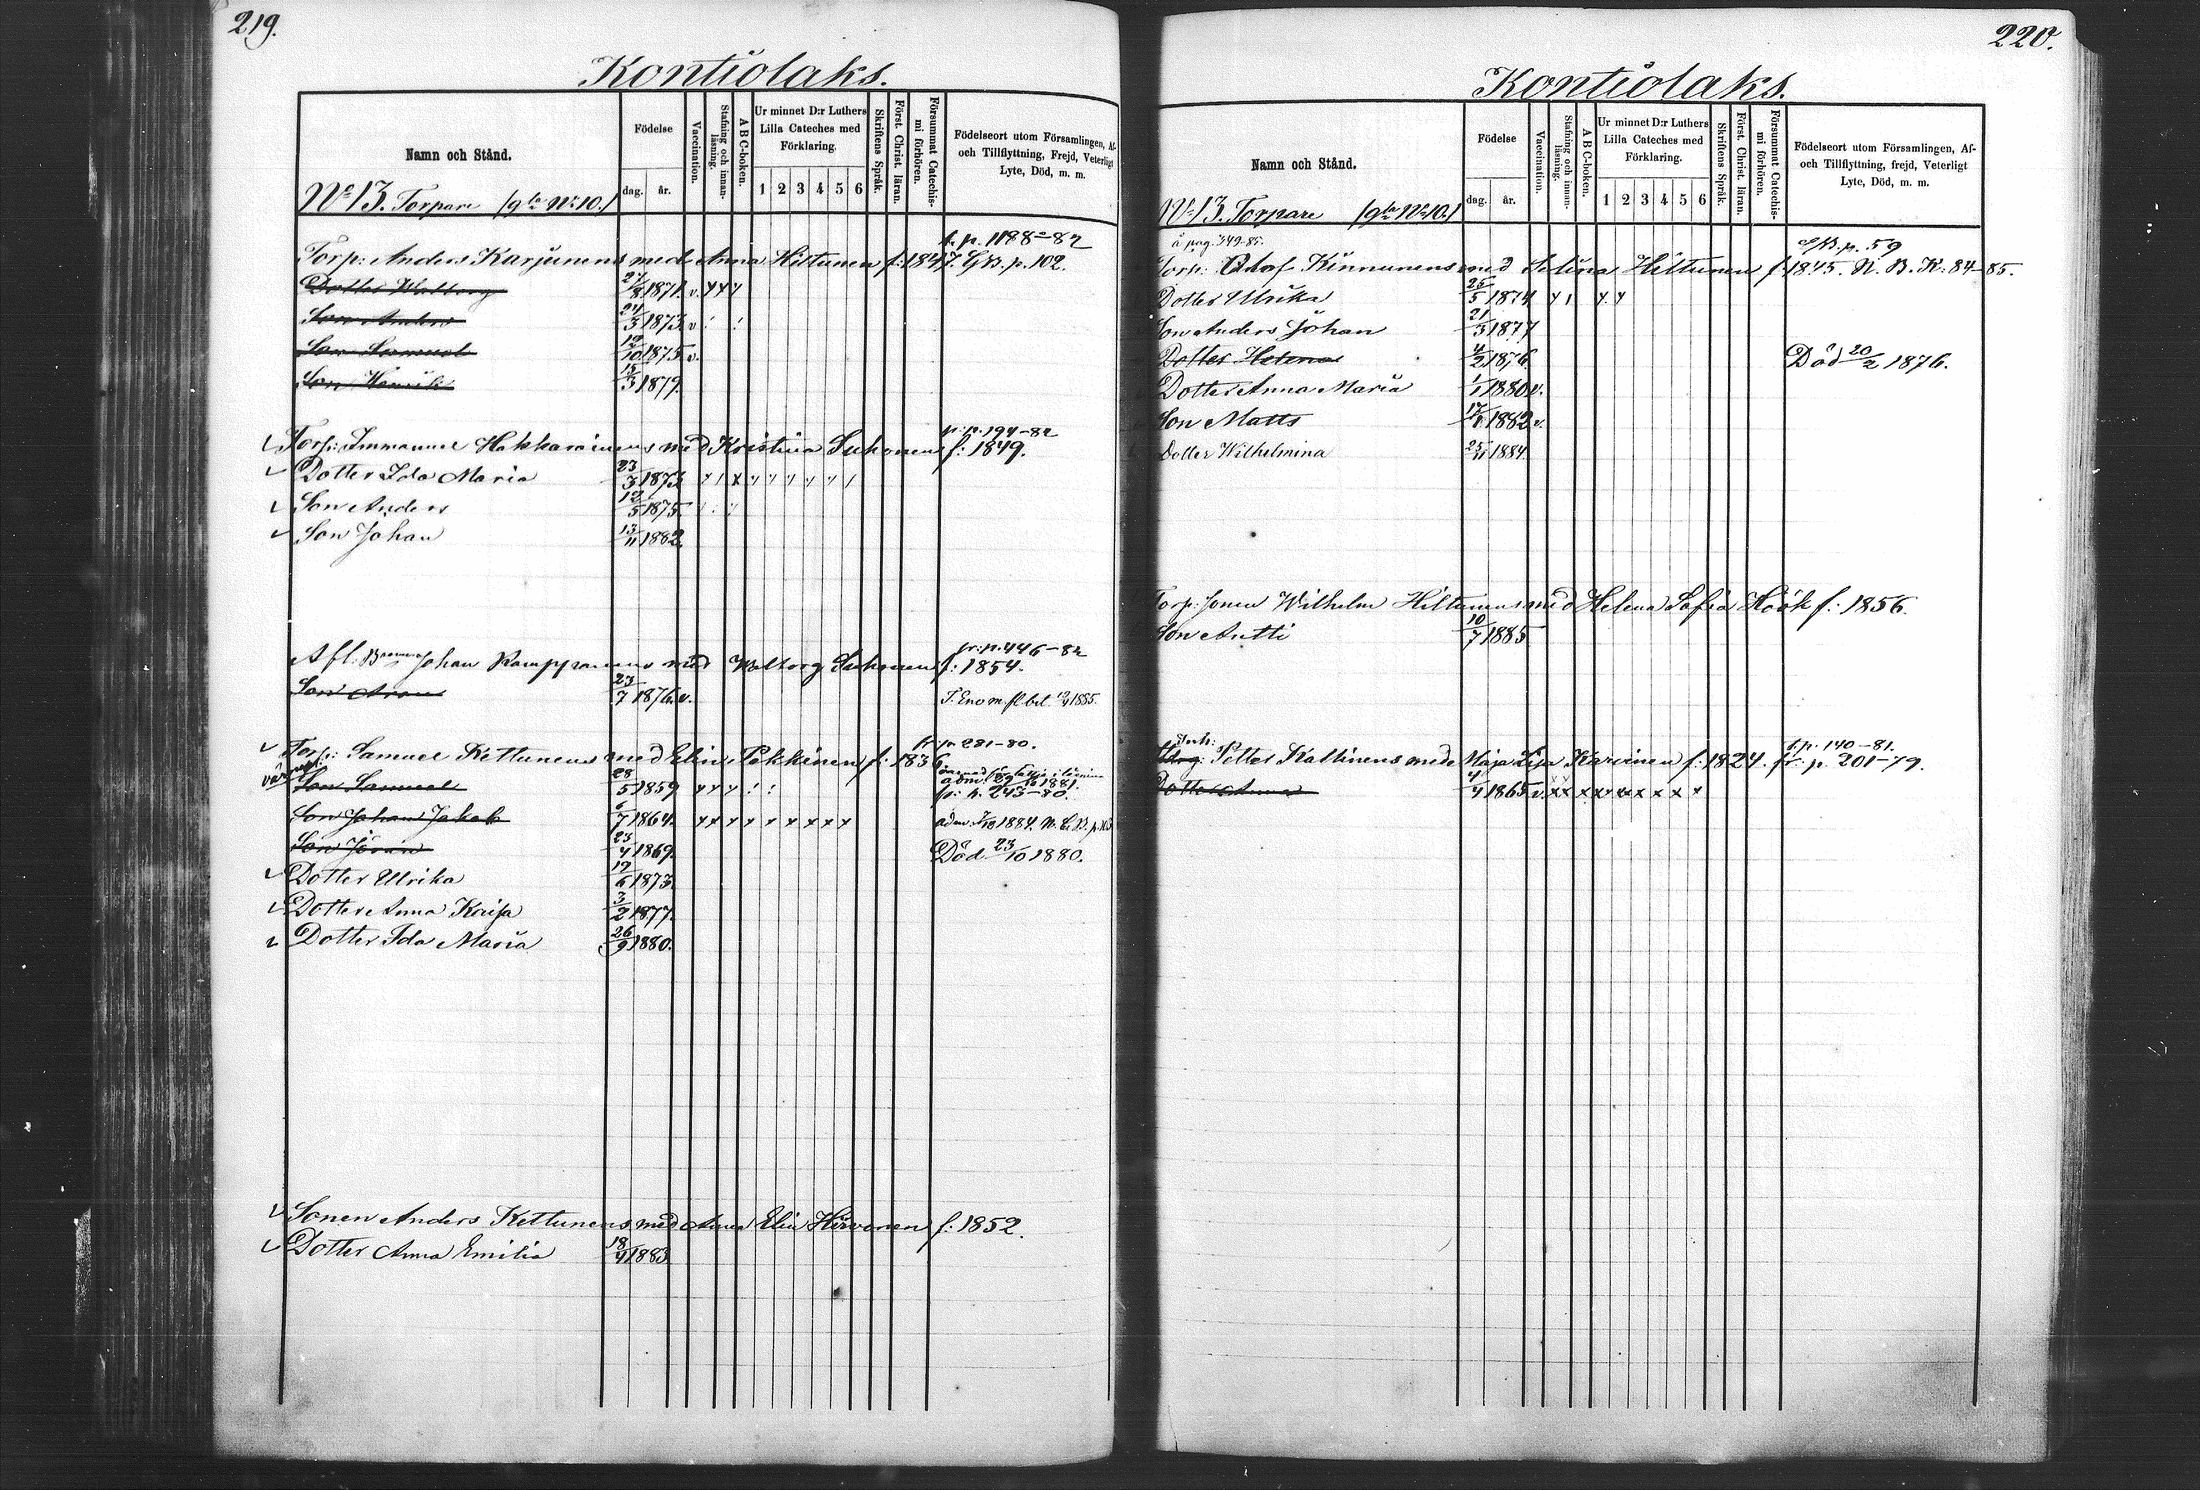 219.
Kontiolaks.
Namn och Stånd.
Födelse
dag. år.
Vaccination.
Stafning och innanläsning.
A B C-boken.
Ur minnet D:r Luthers Lilla Cateches med Förklaring.
1 2 3 4 5 6
Skriftens Språk.
Först. Christ. läran.
Försummat Catechismi förhören.
Födelseort utom Församlingen, Af-
och Tillflyttning, Frejd, Veterligt
Lyte, Död, m. m.
No 13. Torpare /gla No 10./
t. p. 1188-82
Torp: Anders Karjunens med Anna Hiltunen f: 1847. GB. p. 102.
Dotter Walborg 27/8 1871. v.
Son Anders 24/3 1873. v
Son Samuel 12/10 1875 v.
Son Henrik 15/3 1879.
fr. p. 194-82
Torp: Immanuel Hakkarainens med Kristina Suhonen f: 1849.
Dotter Ida Maria 23/3 1873
Son Anders 12/5 1875
Son Johan 13/11 1882.
fr: p. 446-82
Johan Romppanens med Walborg Suhonen f: 1854.
Son Aron 23/7 1876. v. T. Eno m. fl. bet. 1885.
fr p 281-80.
Torp: Samuel Kettunens med Elin Pekkinen f: 1836
Son Samuel 28/5 1859 1881.
fr: p. 243-80.
Son Johan Jakob 6/7 1864. adm. 1884.
Son Jöran 23/4 1869. Död 23/10 1880.
Dotter Ulrika 12/6 1873.
Dotter Anna Kaisa 3/2 1877.
Dotter Ida Maria 26/9 1880.
Sonen Anders Kettunens med Anna Elin Hirvonen f: 1852.
Dotter Anna Emilia 18/4 1883
220.
Kontiolaks.
Namn och Stånd.
Födelse
dag. år.
Vaccination.
Stafning och innanläsning.
A B C-boken.
Ur minnet D:r Luthers Lilla Cateches med Förklaring.
1 2 3 4 5 6
Skriftens Språk.
Först. Christ. läran.
Försummat Catechismi förhören.
Födelseort utom Församlingen, Af-
och Tillflyttning, frejd, Veterligt
Lyte, Död, m. m.
No 13. Torpare /gla No 10./
å pag. 349-85. GB. p. 59
Torp: Kinnunens med Selina Hiltunen f: 1845. N. B. K. 84-85.
Dotter Ulrika 26/5 1874
Son Anders Johan 21/3 1877
Dotter Helena 4/2 1876. Död 20/2 1876.
Dotter Anna Maria 1/1 1880 v.
Son Matts 1882 v.
Dotter Wilhelmina 25/11 1884.
Torp: Sonen Wilhelm Hiltunens med Helena Sofia Höök f: 1856.
Son Antti 10/7 1885
Inh: t. p. 140-81.
Petter Kaltinens med Maja Lisa Karvinen f: 1824. fr. p. 201-79.
Dotter Anna 4/4 1865 v.